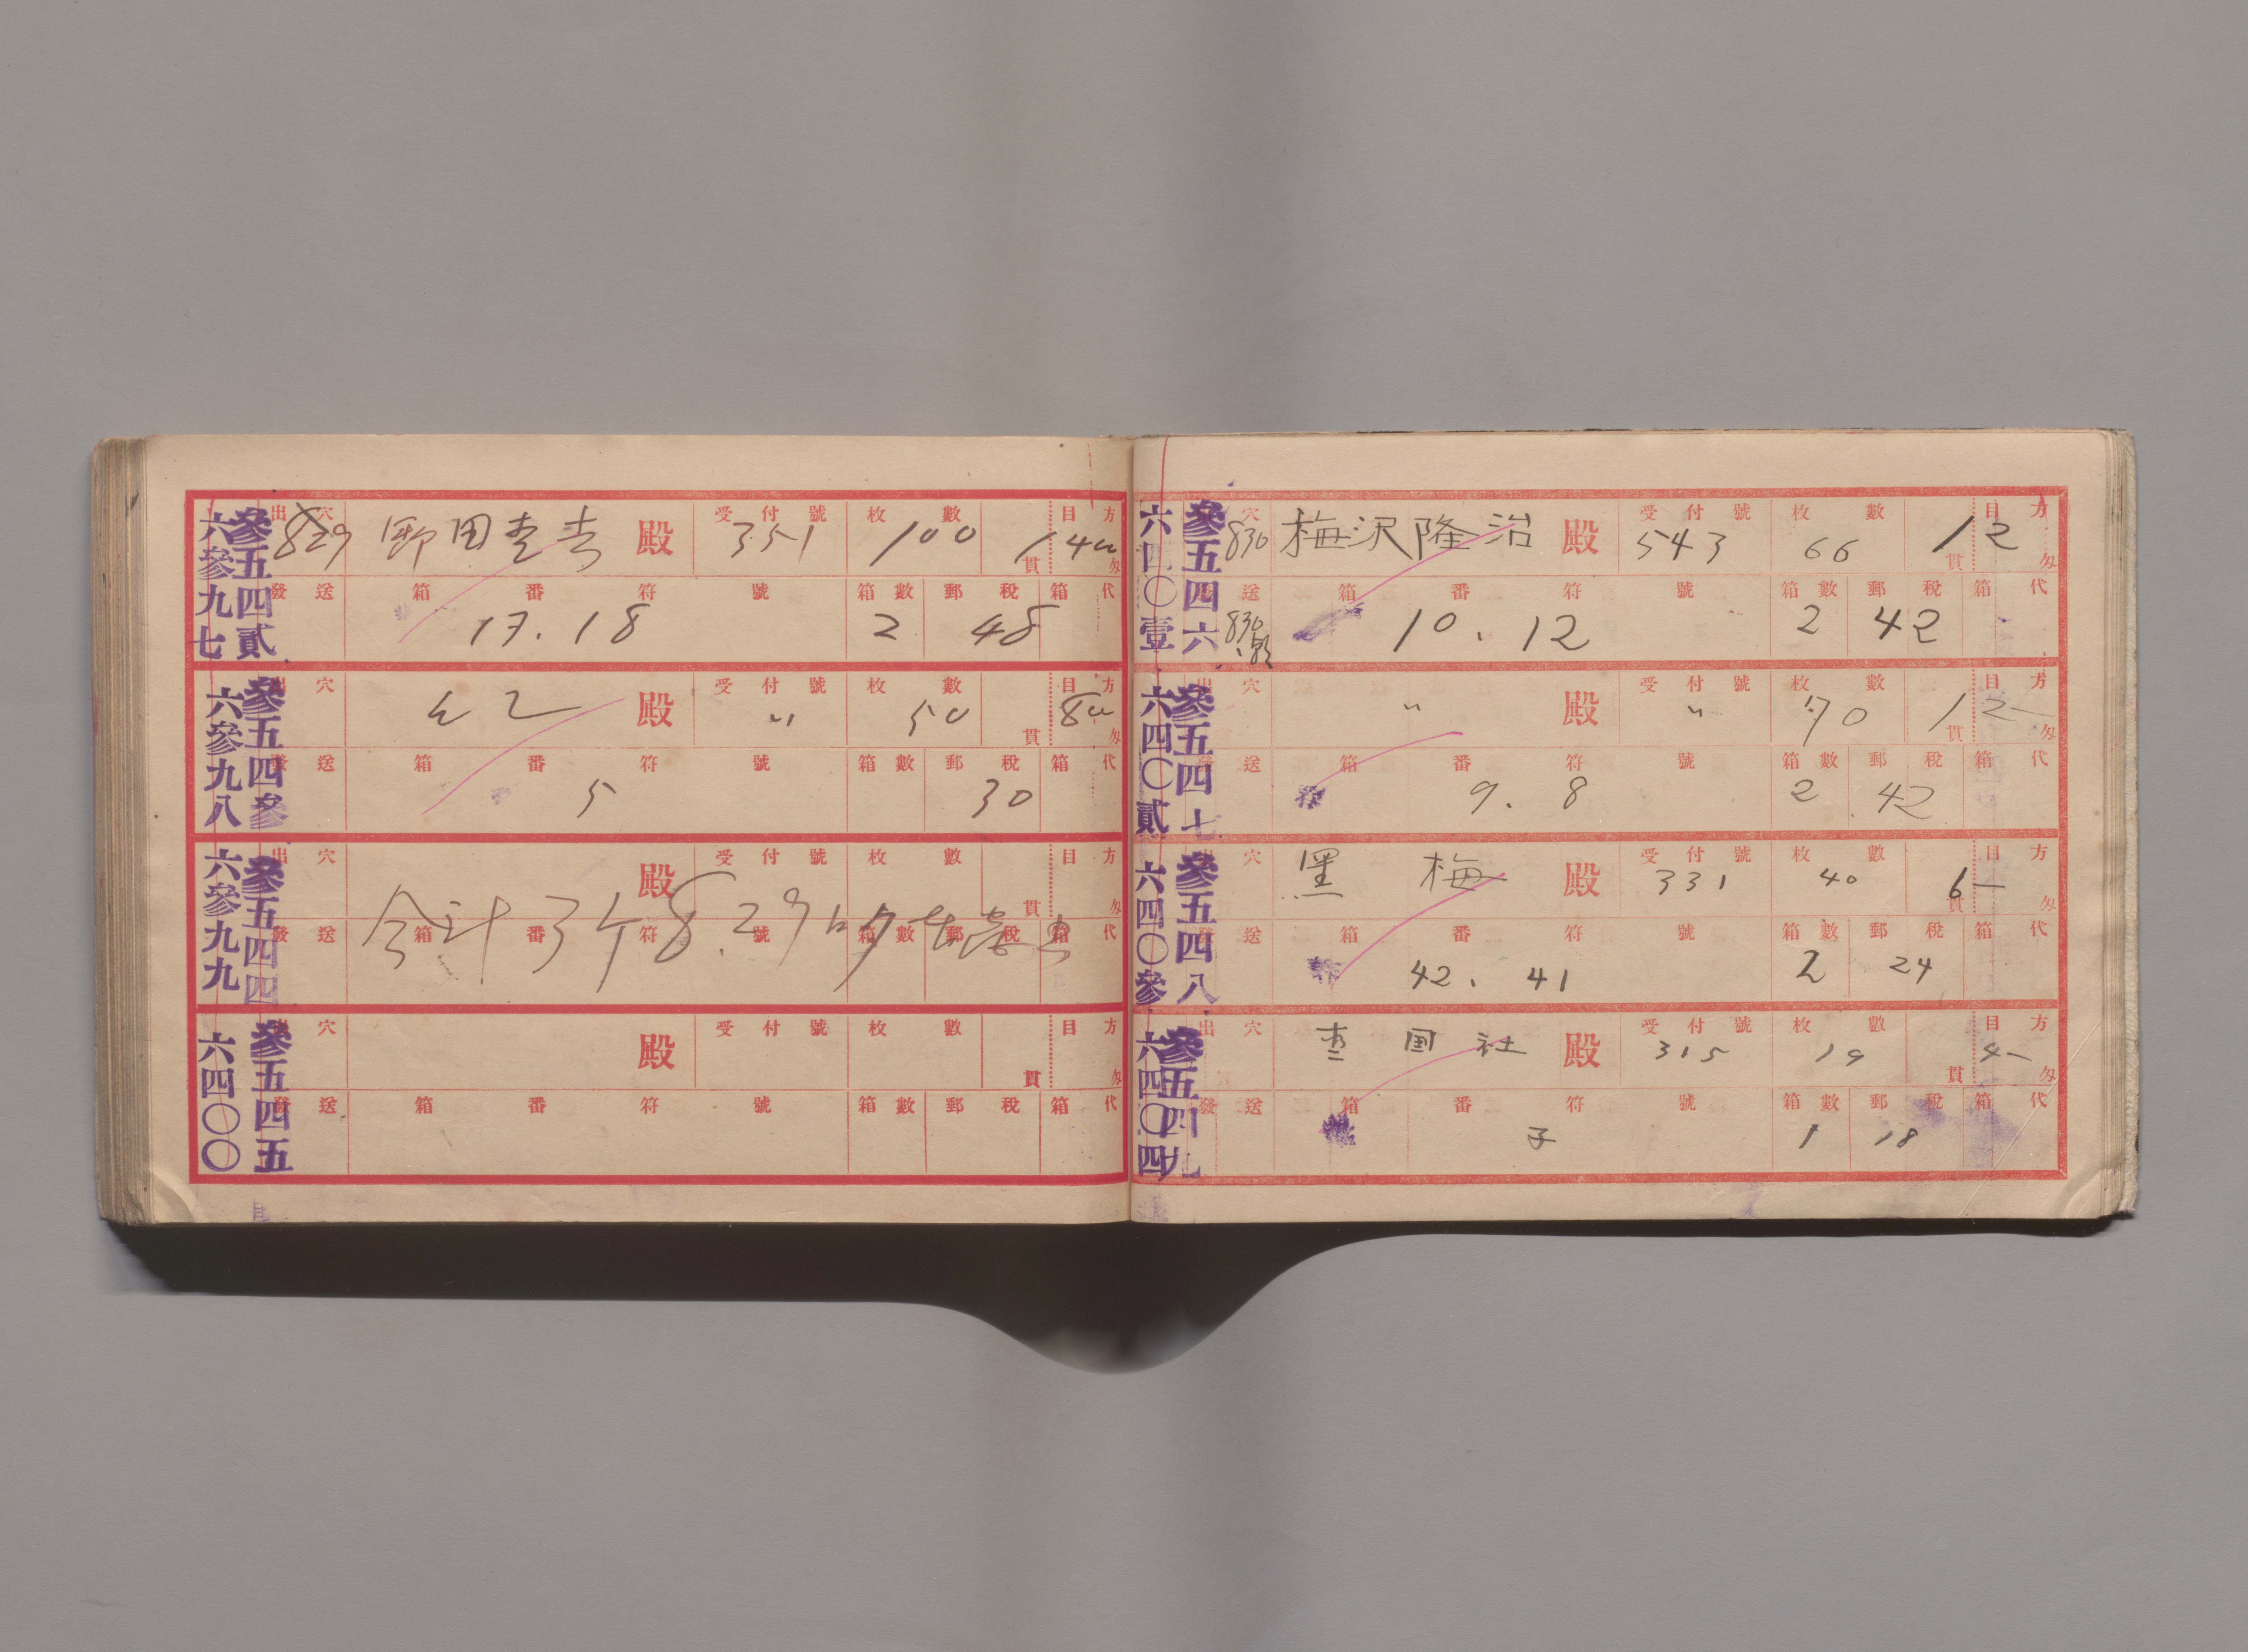 六參九七
參五四貳
出 穴 殿 受付號 枚數 目方
829 野田 351 100 貫 匁
發送 箱番符號 箱數 郵稅 箱代
17.18 2 48
六參九八
參五四參
出 穴 殿 受付號 枚數 目方
〃 50 貫 匁
發送 箱番符號 箱數 郵稅 箱代
5 30
六參九九
參五四四
出 穴 殿 受付號 枚數 目方
貫 匁
合計 8.29
發送 箱番符號 箱數 郵稅 箱代
六四〇〇
參五四五
出 穴 殿 受付號 枚數 目方
貫 匁
發送 箱番符號 箱數 郵稅 箱代
六四〇壹
參五四六
穴 殿 受付號 枚數 目方
830 梅沢隆治 543 66 貫 12 匁
送 箱番符號 箱數 郵稅 箱代
830 10.12 2 42
六四〇貳
參五四七
出 穴 殿 受付號 枚數 目方
〃 〃 70 貫 12 匁
發送 箱番符號 箱數 郵稅 箱代
9.8 2 42
六四〇參
參五四八
出 穴 殿 受付號 枚數 目方
黑梅 331 40 貫 6 匁
發送 箱番符號 箱數 郵稅 箱代
42.41 2 24
六四〇四
參五四九
出 穴 殿 受付號 枚數 目方
国社 315 19 貫 4 匁
發送 箱番符號 箱數 郵稅 箱代
子 1 18